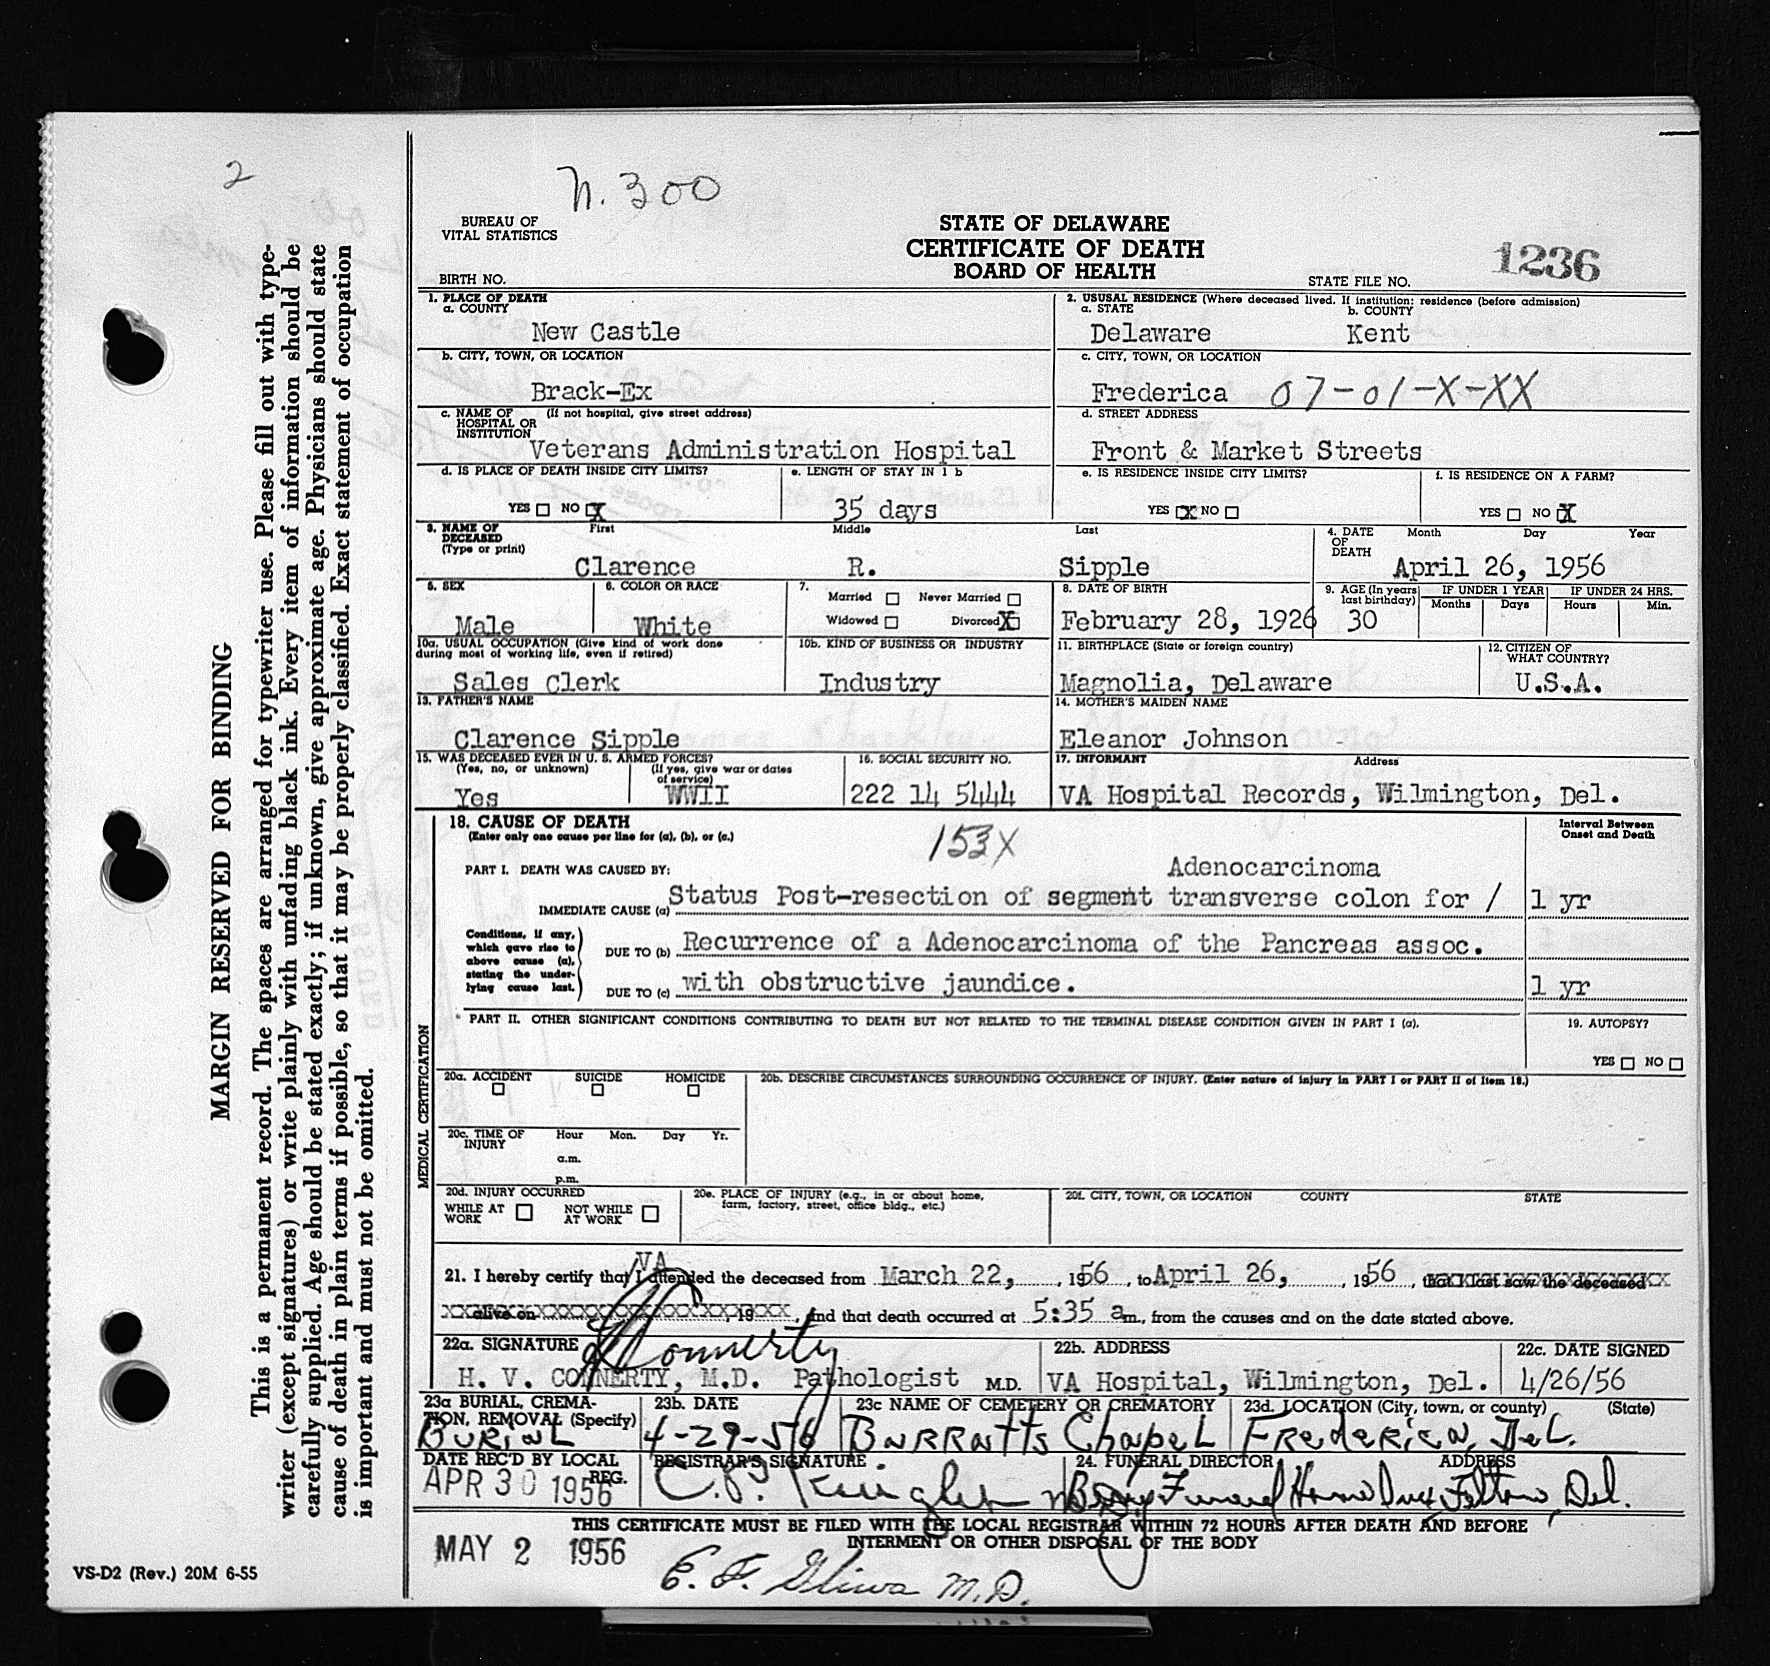 2
N. 300
BUREAU OF
VITAL STATISTICS
STATE OF DELAWARE
CERTIFICATE OF DEATH
BOARD OF HEALTH
BIRTH NO.
STATE FILE NO. 1236
MARGIN RESERVED FOR BINDING
This is a permanent record. The spaces are arranged for typewriter use. Please fill out with type-
writer (except signatures) or write plainly with unfading black ink. Every item of information should be
carefully supplied. Age should be stated exactly; if unknown, give approximate age. Physicians should state
cause of death in plain terms if possible, so that it may be properly classified. Exact statement of occupation
is important and must not be omitted.
1. PLACE OF DEATH
a. COUNTY
New Castle
2. USUSAL RESIDENCE (Where deceased lived. If institution: residence (before admission)
a. STATE b. COUNTY
Delaware Kent
b. CITY, TOWN, OR LOCATION
Brack-Ex
c. CITY, TOWN, OR LOCATION
Frederica 07-01-X-XX
c. NAME OF (If not hospital, give street address)
HOSPITAL OR
INSTITUTION
Veterans Administration Hospital
d. STREET ADDRESS
Front & Market Streets
d. IS PLACE OF DEATH INSIDE CITY LIMITS?
YES NO X
e. LENGTH OF STAY IN 1 b
35 days
e. IS RESIDENCE INSIDE CITY LIMITS?
YES X NO
f. IS RESIDENCE ON A FARM?
YES NO X
3. NAME OF
DECEASED
(Type or print)
First Middle Last
Clarence R. Sipple
4. DATE
OF
DEATH
Month Day Year
April 26, 1956
5. SEX
Male
6. COLOR OR RACE
White
7.
Married Never Married
Widowed Divorced X
8. DATE OF BIRTH
February 28, 1926
9. AGE (In years
last birthday)
30
IF UNDER 1 YEAR
Months Days
IF UNDER 24 HRS.
Hours Min.
10a. USUAL OCCUPATION (Give kind of work done
during most of working life, even if retired)
Sales Clerk
10b. KIND OF BUSINESS OR INDUSTRY
Industry
11. BIRTHPLACE (State or foreign country)
Magnolia, Delaware
12. CITIZEN OF
WHAT COUNTRY?
U.S.A.
13. FATHER'S NAME
Clarence Sipple
14. MOTHER'S MAIDEN NAME
Eleanor Johnson
15. WAS DECEASED EVER IN U. S. ARMED FORCES?
(Yes, no, or unknown) (If yes, give war or dates
of service)
Yes WWII
16. SOCIAL SECURITY NO.
222 14 5444
17. INFORMANT Address
VA Hospital Records, Wilmington, Del.
MEDICAL CERTIFICATION
18. CAUSE OF DEATH
(Enter only one cause per line for (a), (b), or (c.)
153X
Interval Between
Onset and Death
PART I. DEATH WAS CAUSED BY:
Adenocarcinoma
IMMEDIATE CAUSE (a) Status Post-resection of segment transverse colon for / 1 yr
Conditions, if any,
which gave rise to
above cause (a),
stating the under-
lying cause last.
DUE TO (b) Recurrence of a Adenocarcinoma of the Pancreas assoc.
DUE TO (c) with obstructive jaundice. 1 yr
PART II. OTHER SIGNIFICANT CONDITIONS CONTRIBUTING TO DEATH BUT NOT RELATED TO THE TERMINAL DISEASE CONDITION GIVEN IN PART I (a).
19. AUTOPSY?
YES NO
20a. ACCIDENT SUICIDE HOMICIDE
20b. DESCRIBE CIRCUMSTANCES SURROUNDING OCCURRENCE OF INJURY. (Enter nature of injury in PART I or PART II of Item 18.)
20c. TIME OF
INJURY
Hour Mon. Day Yr.
a.m.
p.m.
20d. INJURY OCCURRED
WHILE AT
WORK
NOT WHILE
AT WORK
20e. PLACE OF INJURY (e.g., in or about home,
farm, factory, street, office bldg., etc.)
20f. CITY, TOWN, OR LOCATION COUNTY STATE
VA
21. I hereby certify that I attended the deceased from March 22, , 1956 , to April 26, , 1956 , that I last saw the deceased
alive on , 19 , and that death occurred at 5:35 a m., from the causes and on the date stated above.
22a. SIGNATURE
H V Connerty
H. V. CONNERTY, M.D. Pathologist M.D.
22b. ADDRESS
VA Hospital, Wilmington, Del.
22c. DATE SIGNED
4/26/56
23a BURIAL, CREMA-
TION, REMOVAL (Specify)
BURIAL
23b. DATE
4-29-56
23c NAME OF CEMETERY OR CREMATORY
Barratts Chapel
23d. LOCATION (City, town, or county) (State)
Frederica, Del.
DATE REC'D BY LOCAL
REG.
APR 30 1956
REGISTRAR'S SIGNATURE
24. FUNERAL DIRECTOR ADDRESS
Berry Funeral Home Felton, Del.
THIS CERTIFICATE MUST BE FILED WITH THE LOCAL REGISTRAR WITHIN 72 HOURS AFTER DEATH AND BEFORE
INTERMENT OR OTHER DISPOSAL OF THE BODY
MAY 2 1956
E. F. Gliwa M.D.
VS-D2 (Rev.) 20M 6-55